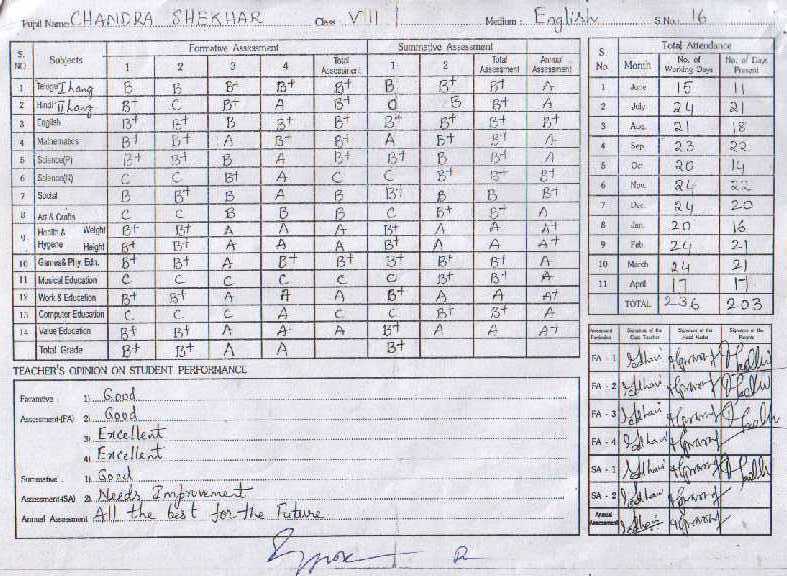 Pupil Name: CHANDRA SHEKHAR Class VIII Medium: English S.No. 16
S. NO Subjects Formative Assessment Summative Assessment Annual Assessment
1 2 3 4 Total Assessment 1 2 Total Assessment
1 Telugu I Lang B B B+ B+ B+ B B+ B+ A
2 Hindi II Lang B+ C B+ A B+ B B+ A
3 English B+ B+ B B+ B+ B+ B+ B+ B+
4 Mathematics B+ B+ A B+ B+ A B+ B+ A
5 Science(P) B+ B+ B A B+ B+ B B+ A
6 Science(N) C C B+ A C C B+ B+ B+
7 Social B B+ B A B B+ B B B+
8 Art & Crafts C C B B B C B+ B+ A
9 Health & Hygene Weight B+ B+ A A A B+ A A A+
Height B+ B+ A A A B+ A A A+
10 Games& Phy. Edn. B+ B+ A B+ B+ B+ B+ B+ A
11 Musical Education C C C C C C B+ B+ A
12 Work & Education B+ B+ A A A B+ A A A+
13 Computer Education C C C A C C B+ B+ A
14 Value Education B+ B+ A A A B+ A A A+
Total Grade B+ B+ A A B+
S. No. Month Total Attendance
No. of Working Days No. of Days Present
1 June 15 11
2 July 24 21
3 Aug. 21 18
4 Sep. 23 22
5 Oct. 20 14
6 Nov. 24 22
7 Dec. 24 20
8 Jan. 20 16
9 Feb 24 21
10 March 24 21
11 April 17 17
TOTAL 236 203
TEACHER'S OPINION ON STUDENT PERFORMANCE
Foramtive : 1) Good
Assessment-(FA) 2) Good
3) Excellent
4) Excellent
Summative : 1) Good
Assessment-(SA) 2) Needs Improvement
Annual Assessment All the best for the Future
Signature of the Class Teacher Signature of the Head Master Signature of the
FA - 1
FA - 2
FA - 3
FA - 4
SA - 1
SA - 2
Annual Assessment